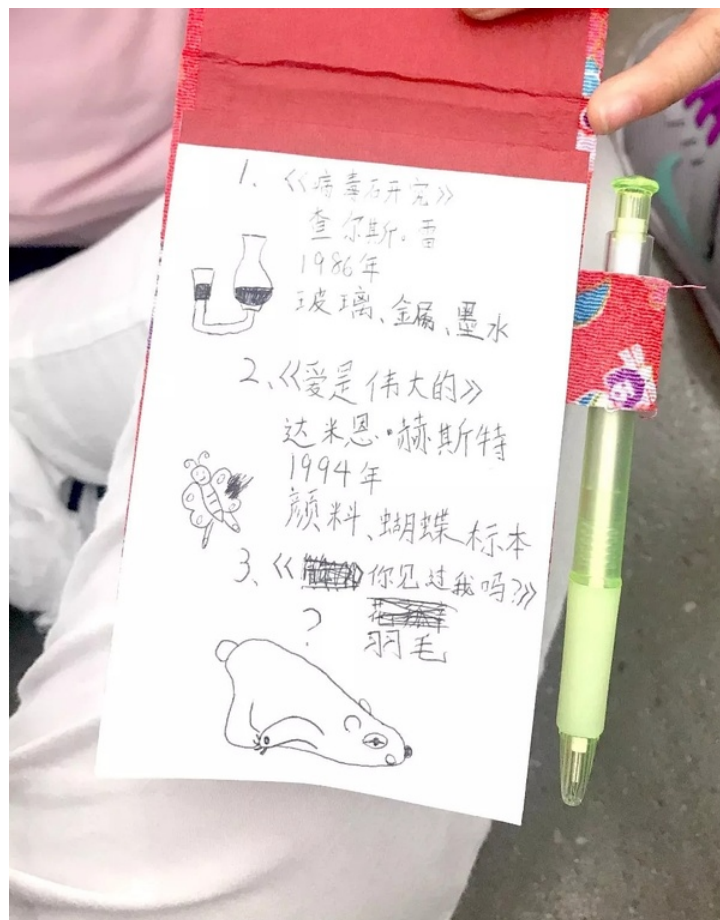 1、《病毒研究》
查尔斯·雷
1986年
玻璃、金属、墨水
2、《爱是伟大的》
达米恩·赫斯特
1994年
颜料、蝴蝶标本
3、《你见过我吗?》
?
羽毛